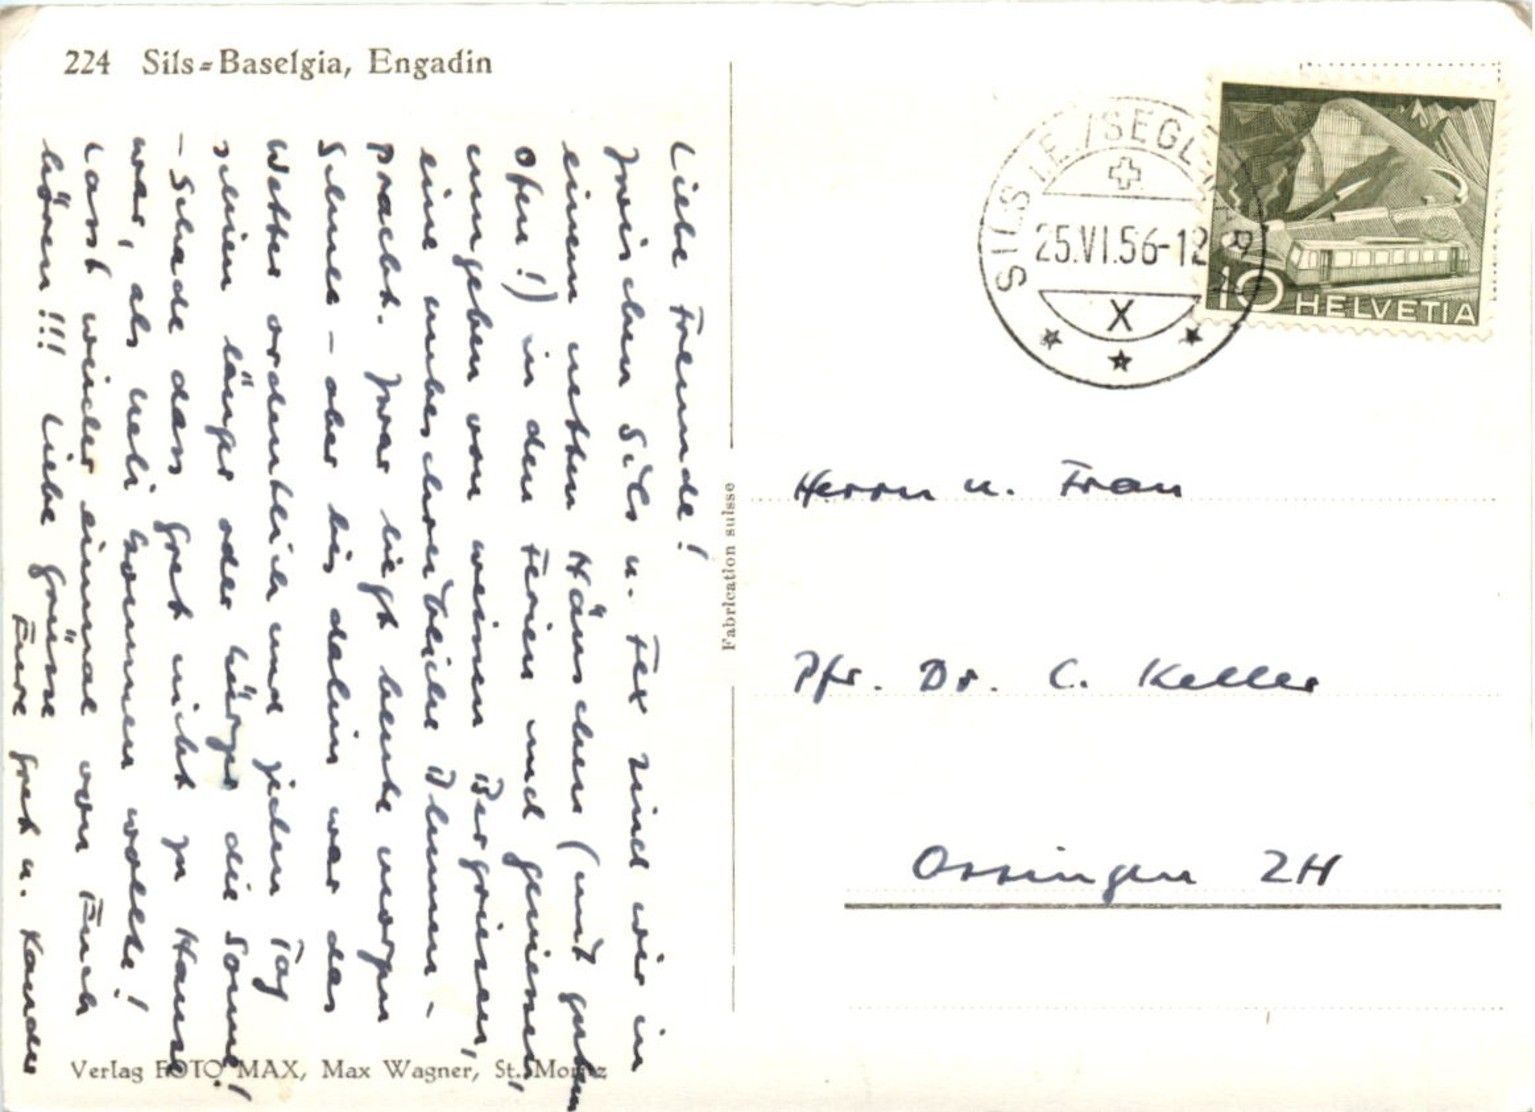 224 Sils=Baselgia, Engadin
Liebe Freunde!
Zwischen Sils u. Fex sind wir in
einem netten Häuschen (mit gutem
Ofen!) in den Ferien und geniessen,
umgeben von weissen Bergriesen,
eine unbeschreibliche Blumen-
pracht. Zwar liegt heute morgen
Schnee – aber bis dahin war das
Wetter ordentlich und jeden Tag
schien länger oder kürzer die Sonne!
– Schade dass Gret nicht zu Hause
war, als Ueli kommen wollte!
Lasst wieder einmal von Euch
hören!!! Liebe Grüsse
Eure Gret u.
Verlag FOTO MAX, Max Wagner, St. Moritz
Fabrication suisse
SILS I.E./SEGL
25.VI.56-12
X
10 HELVETIA
Herrn u. Frau
Pfr. Dr. C. Keller
Ossingen ZH